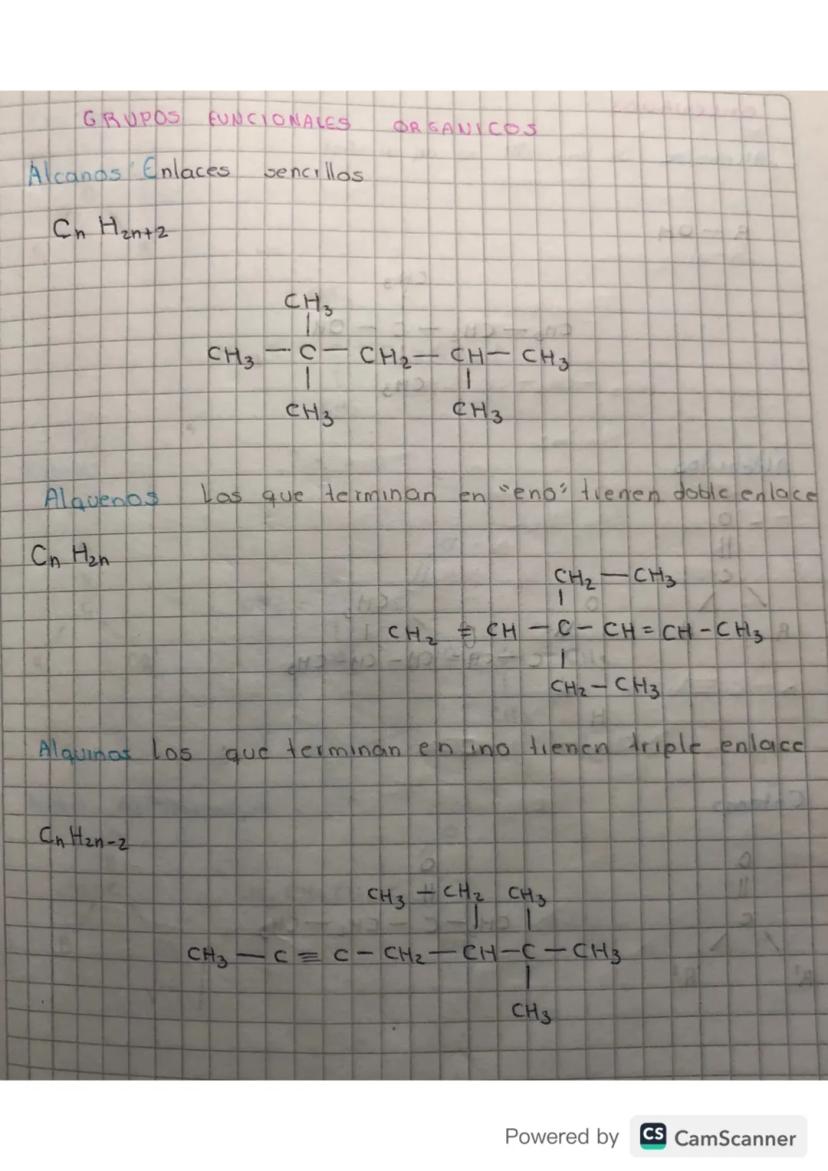 GRUPOS FUNCIONALES ORGANICOS
Alcanos Enlaces sencillos
Cn H2n+2
CH3
|
CH3 — C — CH2 — CH — CH3
| |
CH3 CH3
Alquenos Los que terminan en "eno" tienen doble enlace
Cn H2n
CH2 — CH3
|
CH2 = CH — C — CH = CH - CH3
|
CH2 - CH3
Alquinos los que terminan en ino tienen triple enlace
Cn H2n-2
CH3 — CH2 CH3
| |
CH3 — C ≡ C — CH2 — CH — C — CH3
|
CH3
Powered by CS CamScanner